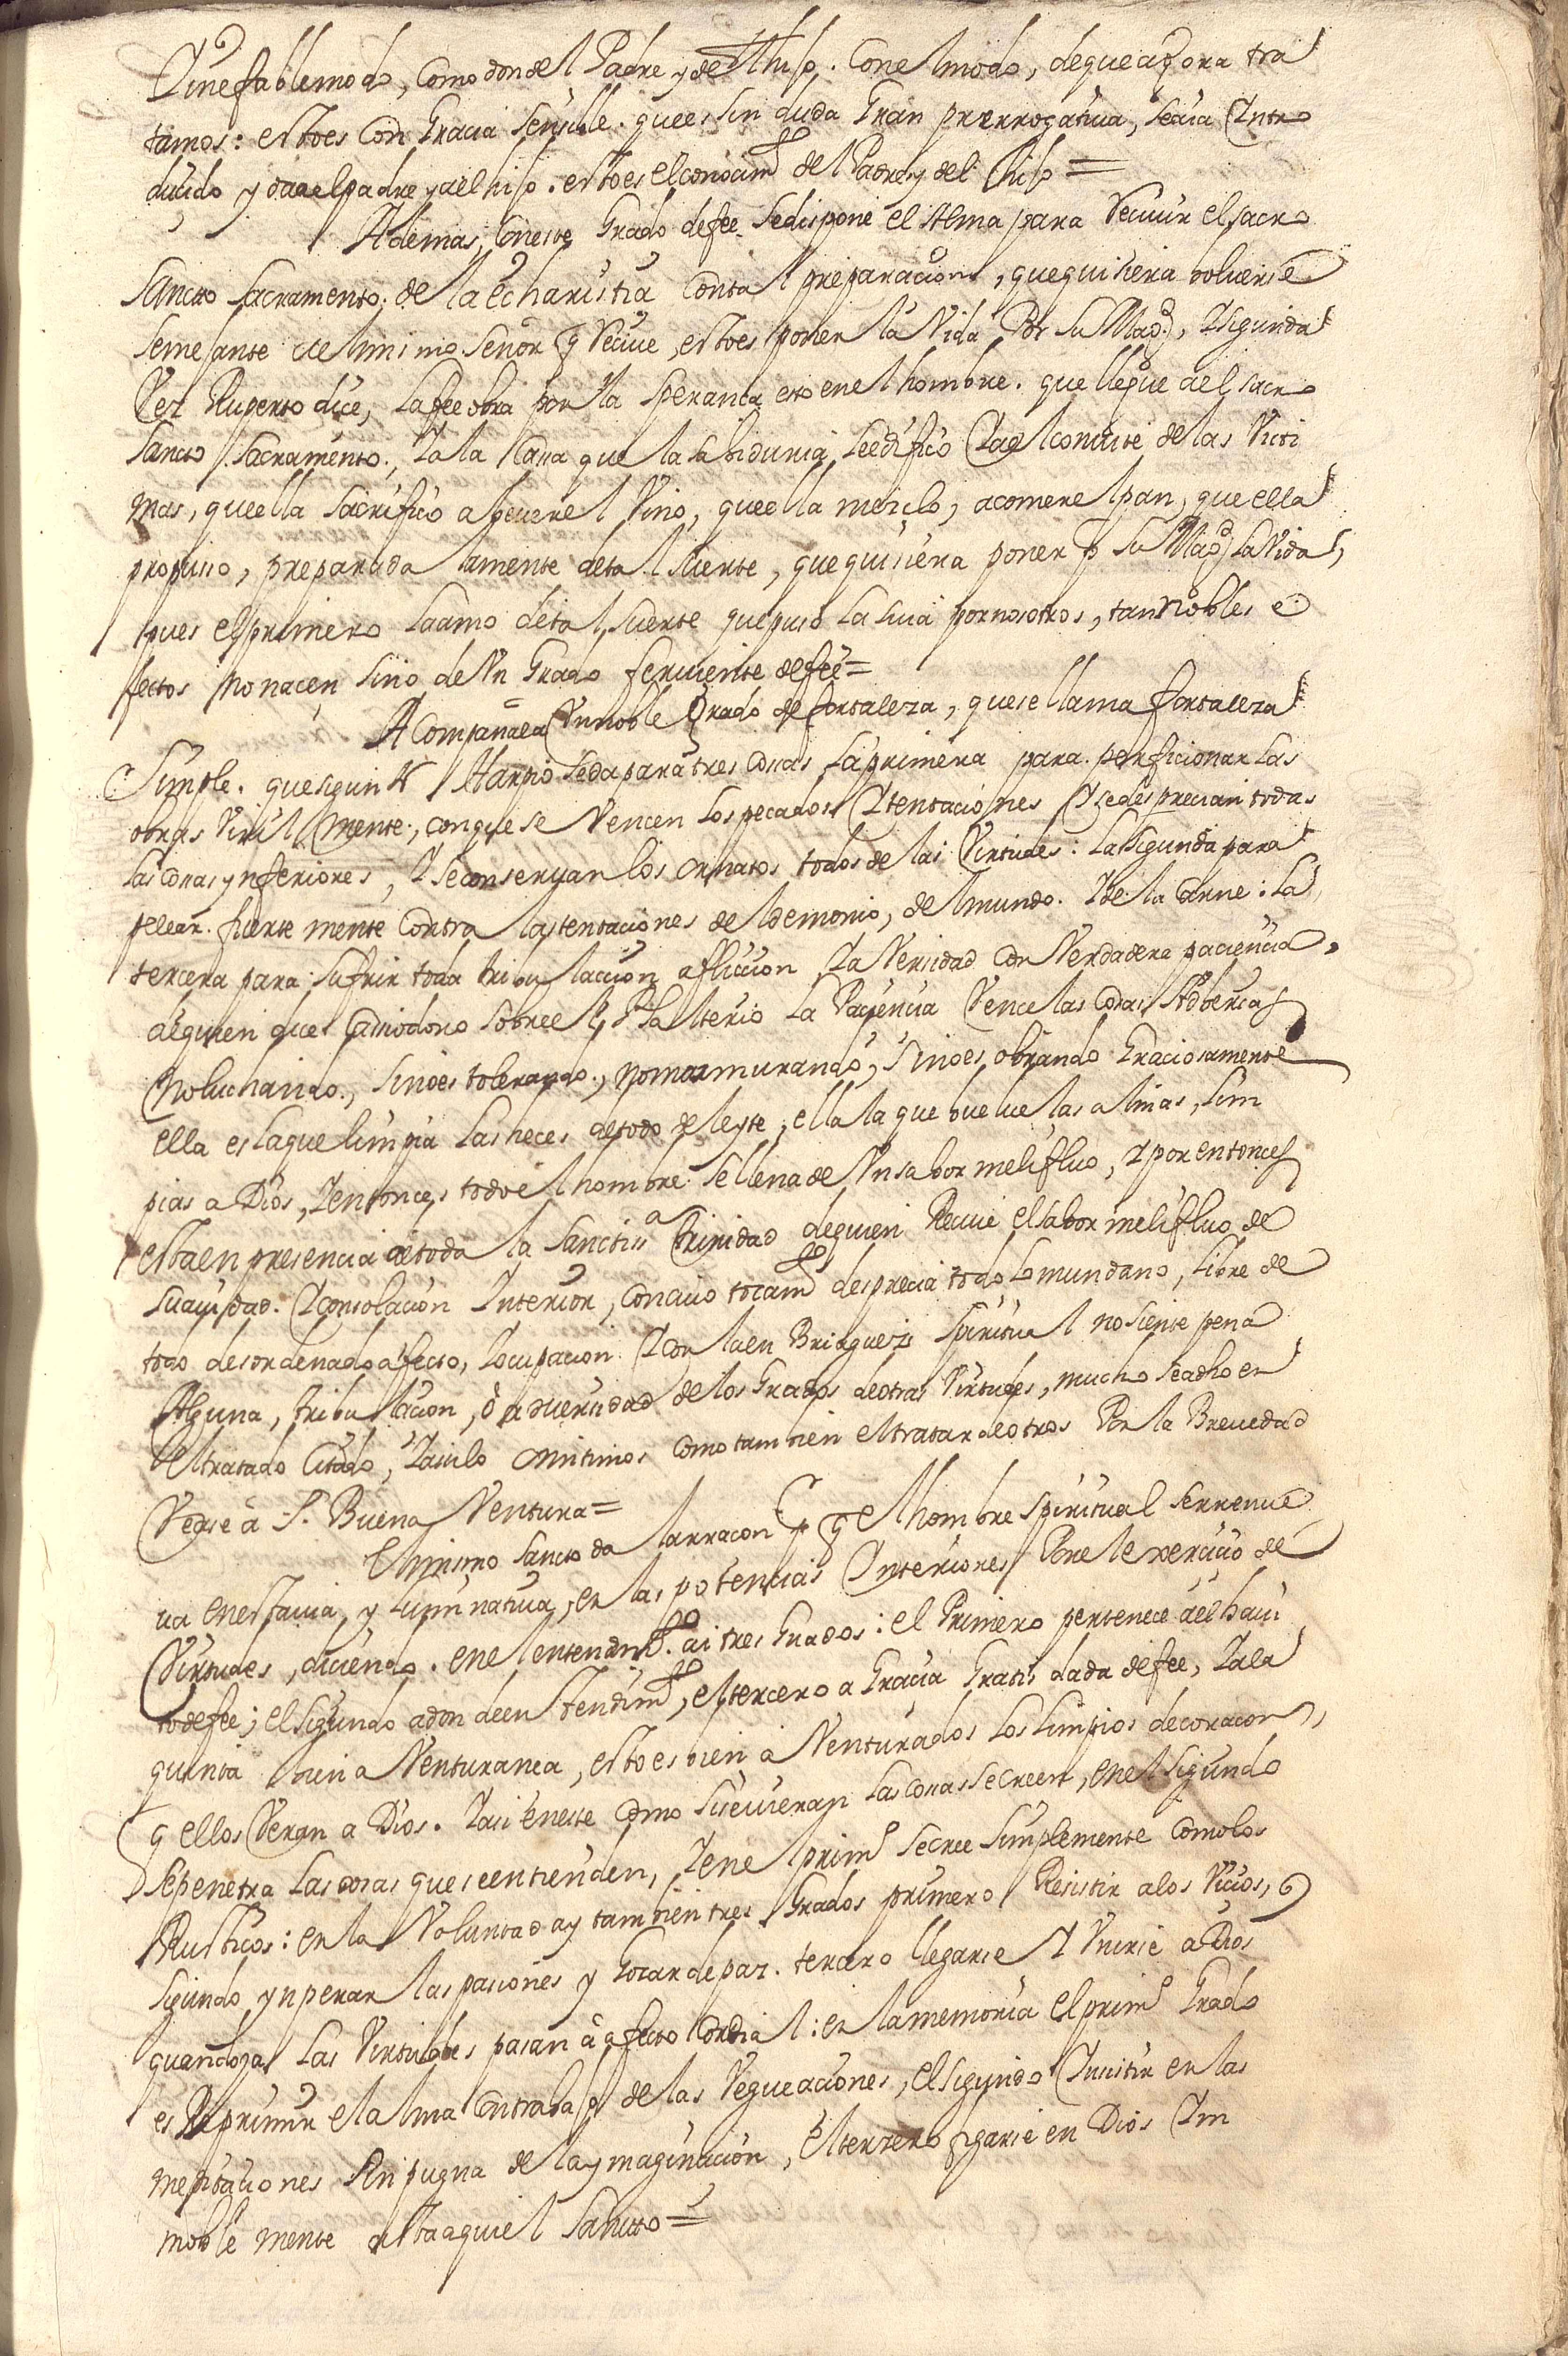 Y inefable modo, como don del Padre y del Hijo. Con el modo, de que agora tra
tamos: esto es con Gracia sensible. que es sin duda Gran prerrogatiua, seaia Intro
ducido y da a el padre y a el hijo. esto es el conocimto del Padre y del hijo =
Ademas, Con este Grado de fee se dispone el Alma para Reciuir el sacro
Sancto sacramento. de la echaristia con tal preparacion, que quisiera voluerse
semejante a el mismo señor q Reciue, esto es poner la Vida Por su Magd, Y segunda
Vez Ruperto dice, la fee obra por la speranca esto en el hombre. que llegue a el sacro
Sancto sacramento, Y a la Cassa que la sabiduria se edifico Y a el conuite de las Victi
mas, que ella sacrifico a beuer el Vino, que ella mezclo, a comer el pan, que ella
propuso, preparada la mente de tal suerte, que quisiera poner p su Magd la Vida,
pues el primero la amo de tal suerte que puso la suia por nosotros, tan Nobles e
fectos no nacen sino de Vn Grado feruiente de fee =
Acompañala Vn noble Grado de fortaleza, que se llama fortaleza
Simple. que segun Harpio se da para tres cosas la primera para perficionar las
obras Viril mente, con que se Vencen los pecados Y tentaciones Y se desprecian todas
las cosas ynferiores, Y se conseruan los ornatos todos de las Virtudes: la segunda para
pelear fuerte mente contra las tentaciones del demonio, del mundo. Y de la carne: la
tercera para sufrir toda tribulaccion afliccion Y aVersidad con Verdadera paciencia,
de quien dice Casiodoro sobre el Psalterio La Paciencia Vence las cosas Adbersas
No luchando, sino es tolerando, no murmurando, sino es obrando Graciosamente
ella es la que limpia las heces de todo deleyte, ella la que buelue las almas, lim
pias a Dios, Y entonces todo el hombre se llena de Vn sabor melifluo, Y por entonces
esta en presencia de toda la Sanctissa Trinidad de quien Reciue el sabor melifluo de
suauidad. Y consolacion Interior, con cuio tocamto desprecia todo lo mundano, libre de
todo desordenado afecto, Y ocupacion Y con la en Briaguez spiritual no siente pena
Alguna, tribulacion, ò aduersidad de los Grados de otras Virtudes, mucho se a dho en
el tratado Citado, Y asi lo omitimos como tambien el tratar de otros Por la Breuedad
Vease à S. Buena Ventura =
El mismo Sancto da la rracon p q el hombre spiritual se rrenue
ua en esta via, y iluminatiua, en las potencias Interiores Por el exercicio de
Virtudes, diciendo. en el entendimto. ai tres Grados: el Primero pertenece a el haui
to de fee; el segundo a don de en tendimto, el tercero a Gracia Gratis dada de fee, Y a la
quinta bien a Venturanca, esto es bien a Venturados los limpios de coracon,
q ellos Veran a Dios. Y asi en este como si se uieran las cosas se creen, en el segundo
se penetra las cosas que se entienden, Y en el primo se cree simplemente como los
Rusticos: en la Voluntad ay tambien tres Grados primero Resistir a los Vicios,
segundo ynperar las pasiones y Gozar de paz. tercero llegarse Y Vnirse a Dios
quando ya las Virtudes pasan à afecto cordial: en la memoria el primo Grado
es Reprimir el alma contraba jo de las Vagueaciones, el segundo Insistir en las
meditaciones sin pugna de la ymaginacion, el tercero fijarse en Dios Im
moble mente asta aqui el Sancto =